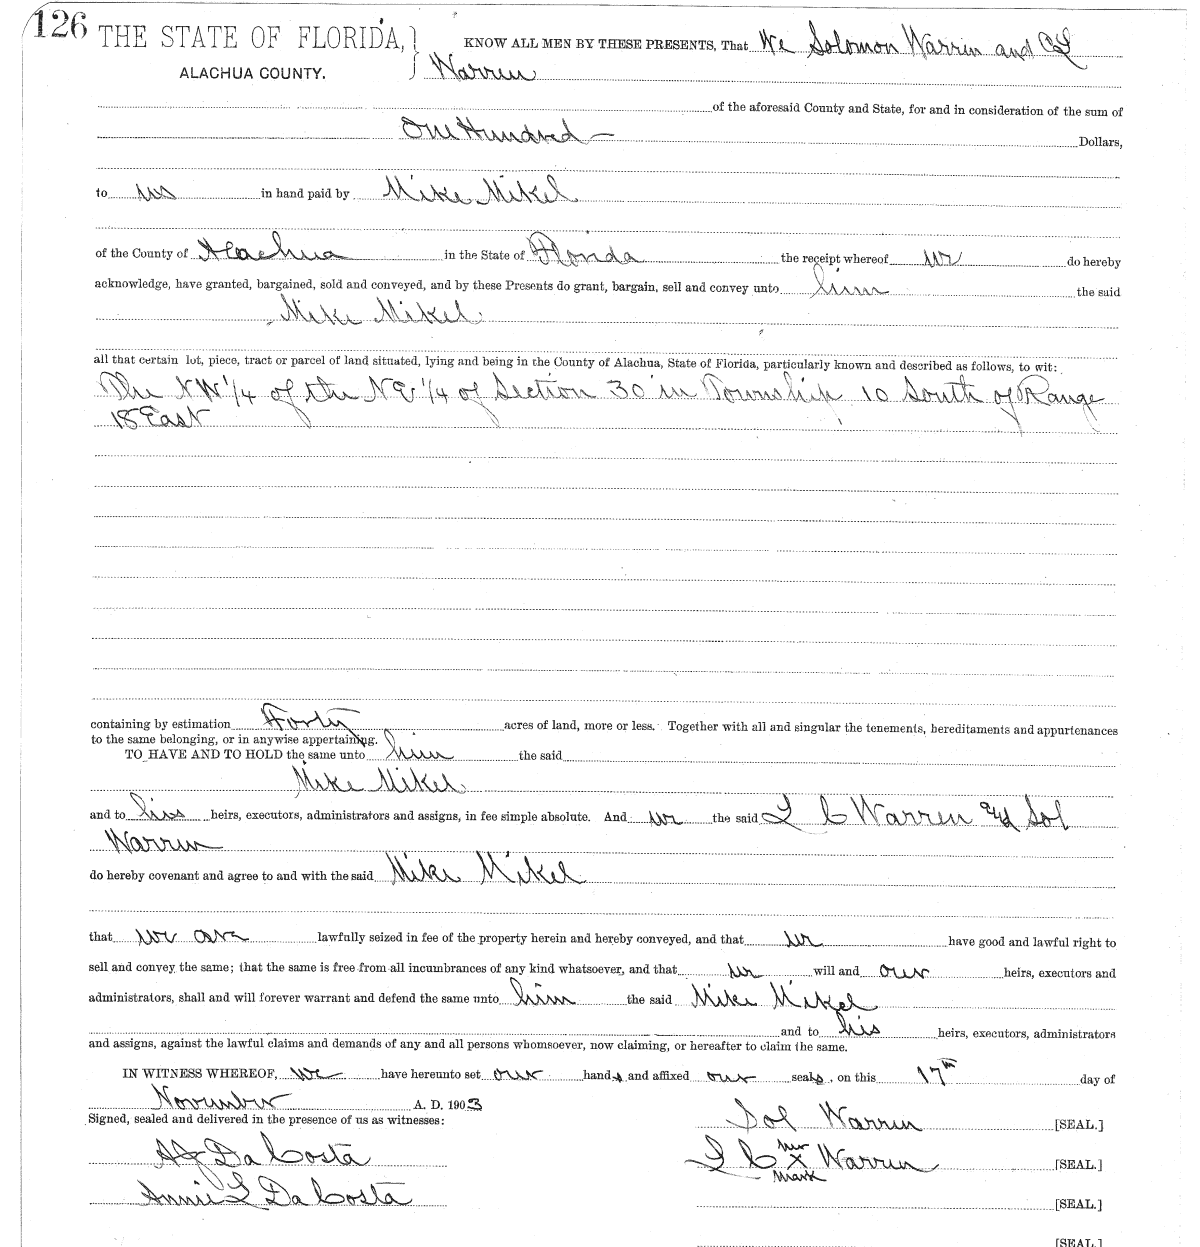 126 THE STATE OF FLORIDA,
KNOW ALL MEN BY THESE PRESENTS, That We Solomon Warren and
ALACHUA COUNTY. Warren
of the aforesaid County and State, for and in consideration of the sum of
One Hundred — Dollars,
to us in hand paid by Mike Mikel
of the County of Alachua in the State of Florida the receipt whereof we do hereby
acknowledge, have granted, bargained, sold and conveyed, and by these Presents do grant, bargain, sell and convey unto him the said
Mike Mikel
all that certain lot, piece, tract or parcel of land situated, lying and being in the County of Alachua, State of Florida, particularly known and described as follows, to wit:
The NW 1/4 of the NE 1/4 of Section 30 in Township 10 South of Range
18 East
containing by estimation Forty acres of land, more or less. Together with all and singular the tenements, hereditaments and appurtenances
to the same belonging, or in anywise appertaining.
TO HAVE AND TO HOLD the same unto him the said
Mike Mikel
and to his heirs, executors, administrators and assigns, in fee simple absolute. And we the said L C Warren and Sol
Warren
do hereby covenant and agree to and with the said Mike Mikel
that we are lawfully seized in fee of the property herein and hereby conveyed, and that we have good and lawful right to
sell and convey the same; that the same is free from all incumbrances of any kind whatsoever, and that we will and our heirs, executors and
administrators, shall and will forever warrant and defend the same unto him the said Mike Mikel
and to his heirs, executors, administrators
and assigns, against the lawful claims and demands of any and all persons whomsoever, now claiming, or hereafter to claim the same.
IN WITNESS WHEREOF, we have hereunto set our hands and affixed our seals, on this 17th day of
November A. D. 1903
Signed, sealed and delivered in the presence of us as witnesses:
Sol Warren [SEAL.]
Da Costa
L C her x mark Warren [SEAL.]
Annie L Da Costa
[SEAL.]
[SEAL.]